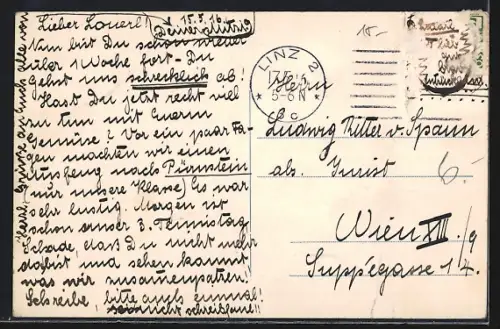 15.5.16.
Lieber Louerl!
Nun bist Du schon wieder
über 1 Woche fort - Du
gehst uns schrecklich ab!
Hast Du jetzt recht viel
zu tun mit Euerm
Gemüse? Vor ein paar Ta-
gen machten wir einen
Ausflug nach Pürnstein
(nur unsere Klasse) Es war
sehr lustig. Morgen ist
schon unser 3. Tennistag.
Schade, daß Du nicht mehr
dabist und sehen kannst
was wir zusammenpatzen!
Schreibe, bitte auch einmal!
nicht schreibfaul!!
Herzl. Grüsse an euch alle von
LINZ 2
5-6N
* c *
Herrn
Ludwig Ritter v. Spaun
abs. Jurist
Wien XIII/9
Suppégasse 14.
10-
6.-